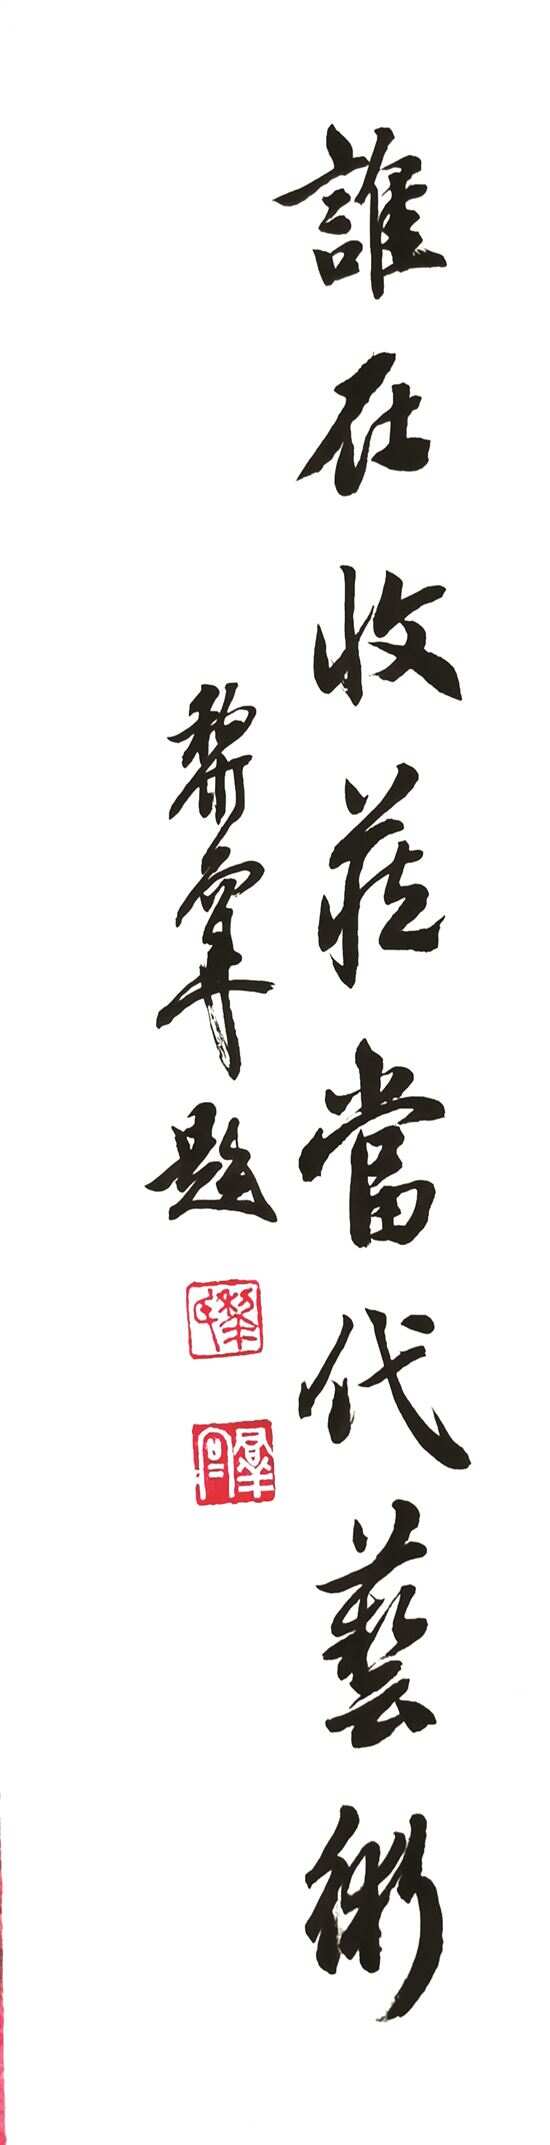 誰在收藏當代藝術
黎 題